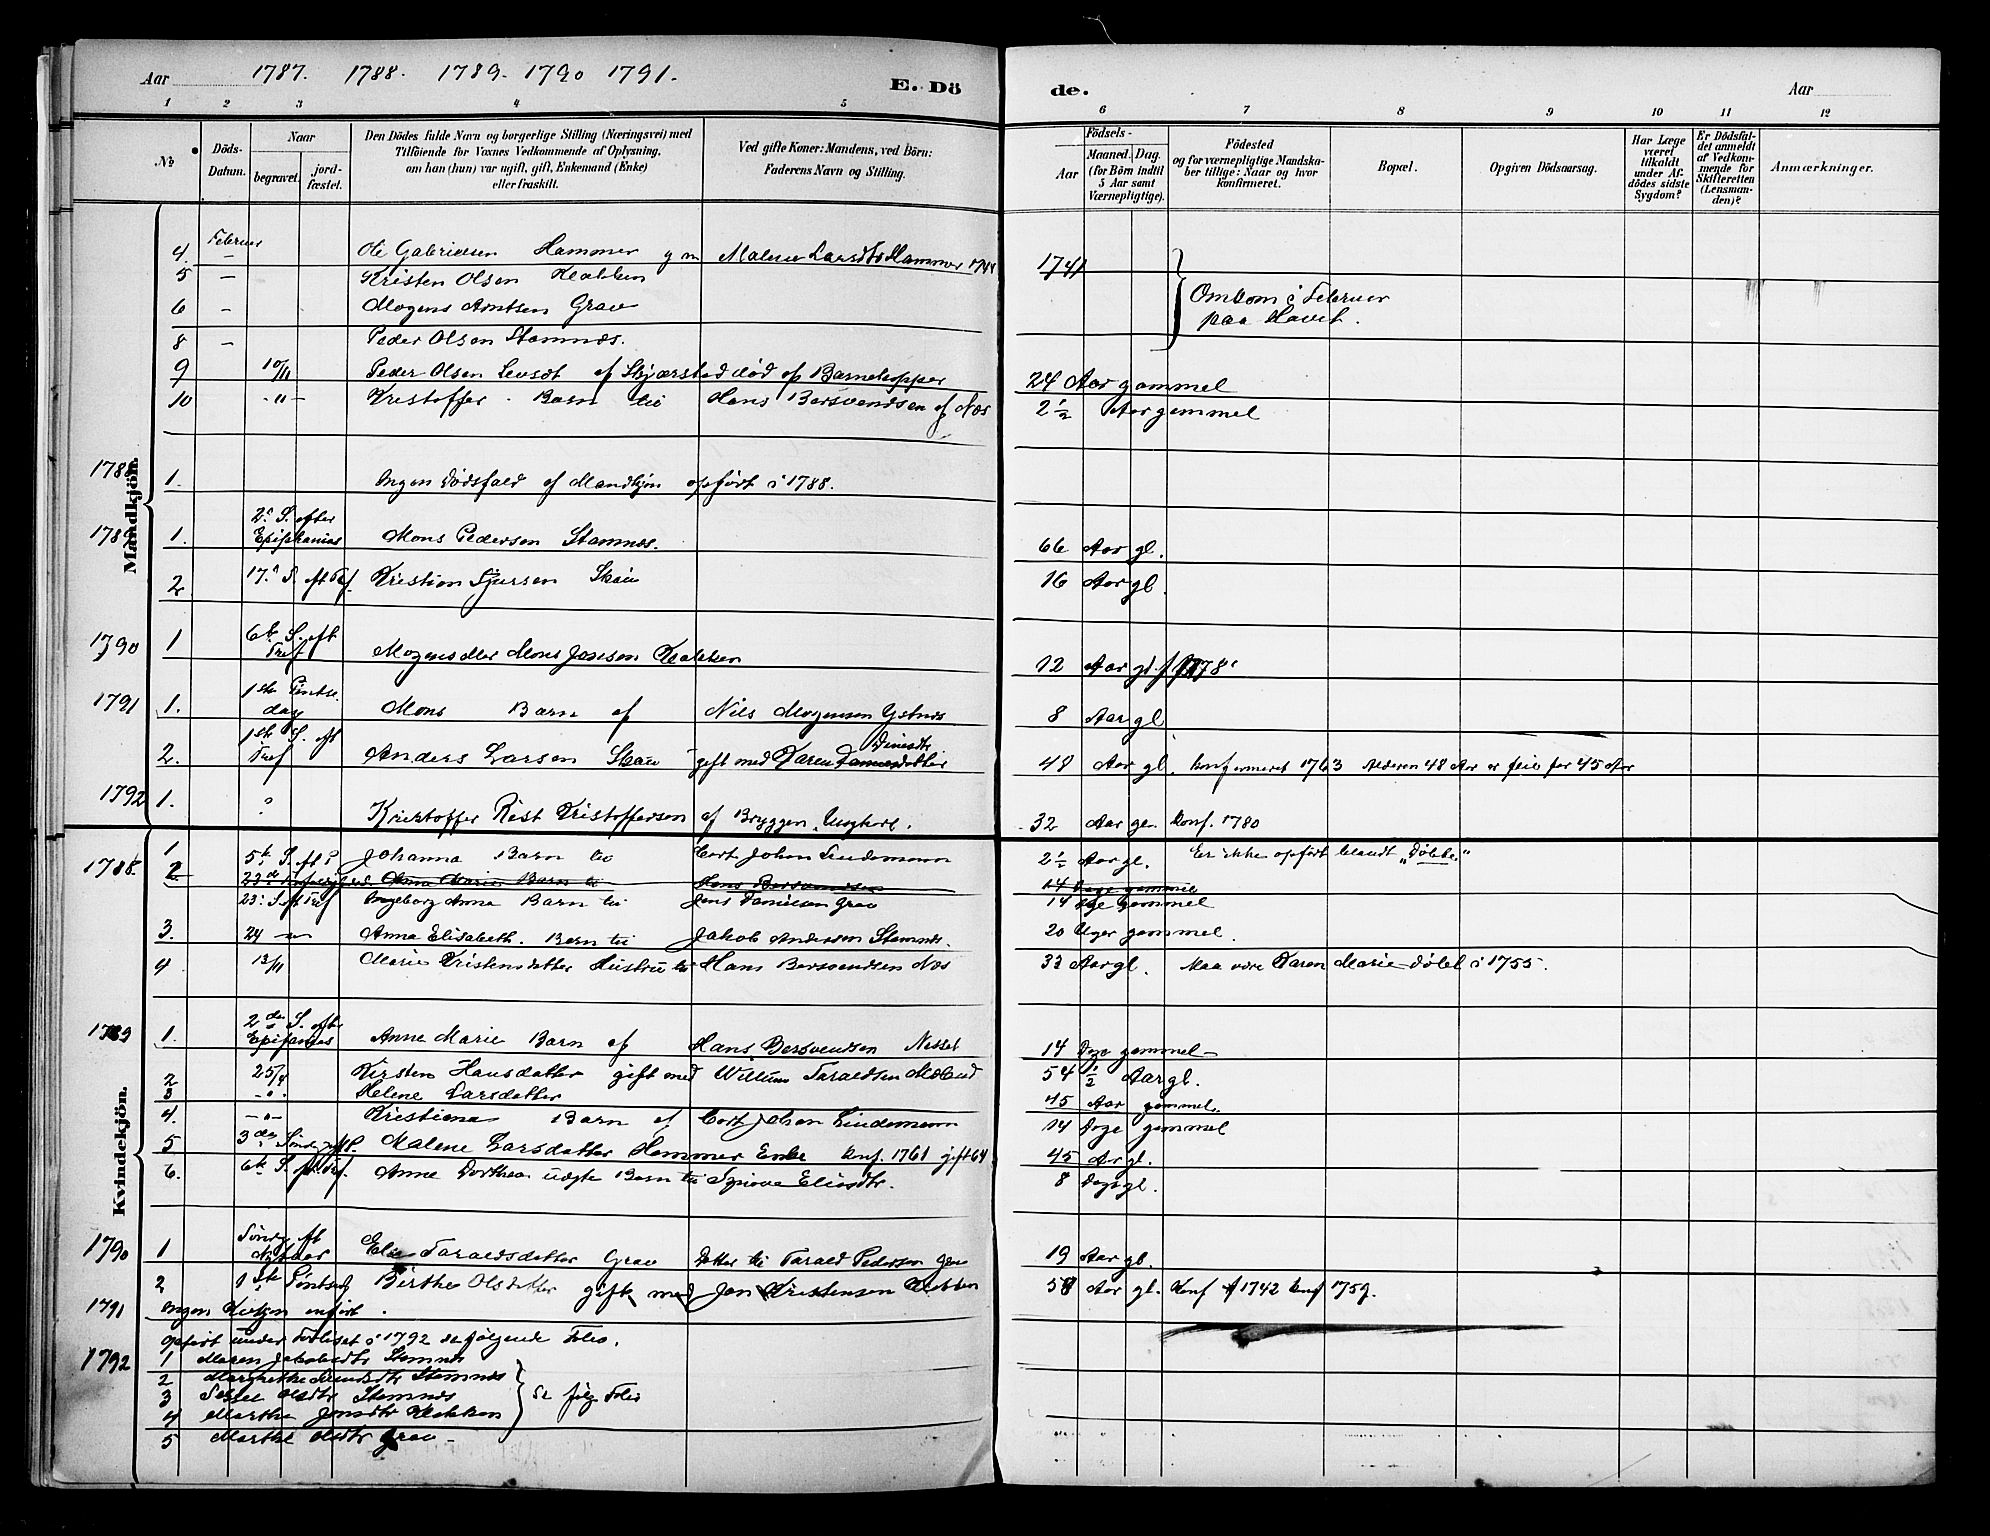 Aar 1787. 1788. 1789. 1790 1791.
E. Dö
de.
Aar
1 2 3 4 5 6 7 8 9 10 11 12
No
Döds-
Datum.
Naar
begravet.
jord-
fæstet.
Den Dödes fulde Navn og borgerlige Stilling (Næringsvei) med
Tilföiende for Voxnes Vedkommende af Oplysning,
om han (hun) var ugift, gift, Enkemand (Enke)
eller fraskilt.
Ved gifte Koner: Mandens, ved Börn:
Faderens Navn og Stilling.
Födsels-
Aar
Maaned. Dag.
(for Börn indtil
5 Aar samt
Værnepligtige).
Födested
og for værnepligtige Mandska-
ber tillige: Naar og hvor
konfirmeret.
Bopæl.
Opgiven Dödsaarsag.
Har Læge
været
tilkaldt
under Af-
dödes sidste
Sygdom?
Er Dödsfal-
det anmeldt
af Vedkom-
mende for
Skifteretten
(Lensman-
den)?
Anmærkninger.
Mandkjön.
Februar
4. — Ole Gabrielsen Hammer g m Malene Larsdtr Hammer 1744 1741
5 — Kristen Olsen Kakken
6 — Mogens Arntsen Grav
Omkom i Februar
paa Havet.
8 — Peder Olsen Stamnes.
9 10/11 Peder Olsen af Skjærstad død af Barnekopper 24 Aar gammel
10 -"- Kristoffer. Barn til Hans Bersvendsen af Næs 2 1/2 Aar gammel
1788 1. Ingen Dødsfald af Mandkjøn opført i 1788.
1789 1. 2n S. efter
Epiphanias Mons Pedersen Stamnes. 66 Aar gl.
2 17n S. eft Tref. Kristian Sjursen Skau 16 Aar gl.
1790 1 6te S. eft
Tref Mogens eller Mons Jonsen Kakken 12 Aar gl. f 1778
1791 1. 1ste Pintse
dag Mons Barn af Nils Mogensen Ystnes 8 Aar gl
2. 1ste S. eft
Tref Anders Larsen Skau gift med Karen datter 48 Aar gl. konfirmeret 1763 Alderen 48 Aar er feil for 45 Aar
1792 1. Kristoffer Rist Kristoffersen af Bryggen, Ungkarl. 32 Aar gl. konf. 1780
Kvindekjön.
1788. 1 5te S. eft P Johanna Barn til Cort Johan Lindemann 2 1/2 Aar gl. Er ikke opført blandt „Døbte"
2 23de Anna Marie Barn til Hans Bersvendsen 14 Dage gammel
23n S. eft Tref Ingeborg Anna Barn til Jens Danielsen Grav 14 Dage gammel
3. 24 —"— Anna Elisabeth. Barn til Jakob Andersen Stamnes. 20 Uger gammel.
4 13/11 Marie Kristensdatter Hustru til Hans Bersvendsen Næs 33 Aar gl. Maa være Karen Marie døbt i 1755.
1789 1. 2den S. efter
Epifanias Anne Marie Barn af Hans Bersvendsen Nesset 14 Dage gammel
2 25/4 Kirsten Hansdatter gift med Willum Taraldsen 54 1/2 Aar gl.
3 -"- Helene Larsdatter 45 Aar gammel.
4. -"- Kristiena Barn af Cort Johan Lindemann 14 Dage gammel
5 3die Malene Larsdatter Hammer Enke konf. 1761 gift 64 45 Aar gl.
6. 6te S. eft Tref. Anne Dorthea uægte Barn til Synnove Eliasdtr. 8 Dage gl.
1790 1 Søndg eft
Nytaar Taraldsdatter Grav Datter til Tarald Pedersen Grav 19 Aar gl.
2 1ste Pintsdg Birthe Olsdatter gift med Jon Kristensen Kakken 58 Aar gl. Konf 1742 1759.
1791 Ingen Kvkjøn anført.
Opført under i 1792 se følgende Folio.
1792 1 Maren Jakobsdtr Stamnes
2 Margrethe Stamnes
3 Olsdtr Stamnes
4 Marthe Jonsdtr Kakken
5 Marthe Olsdtr Grav —
Se følg Folio